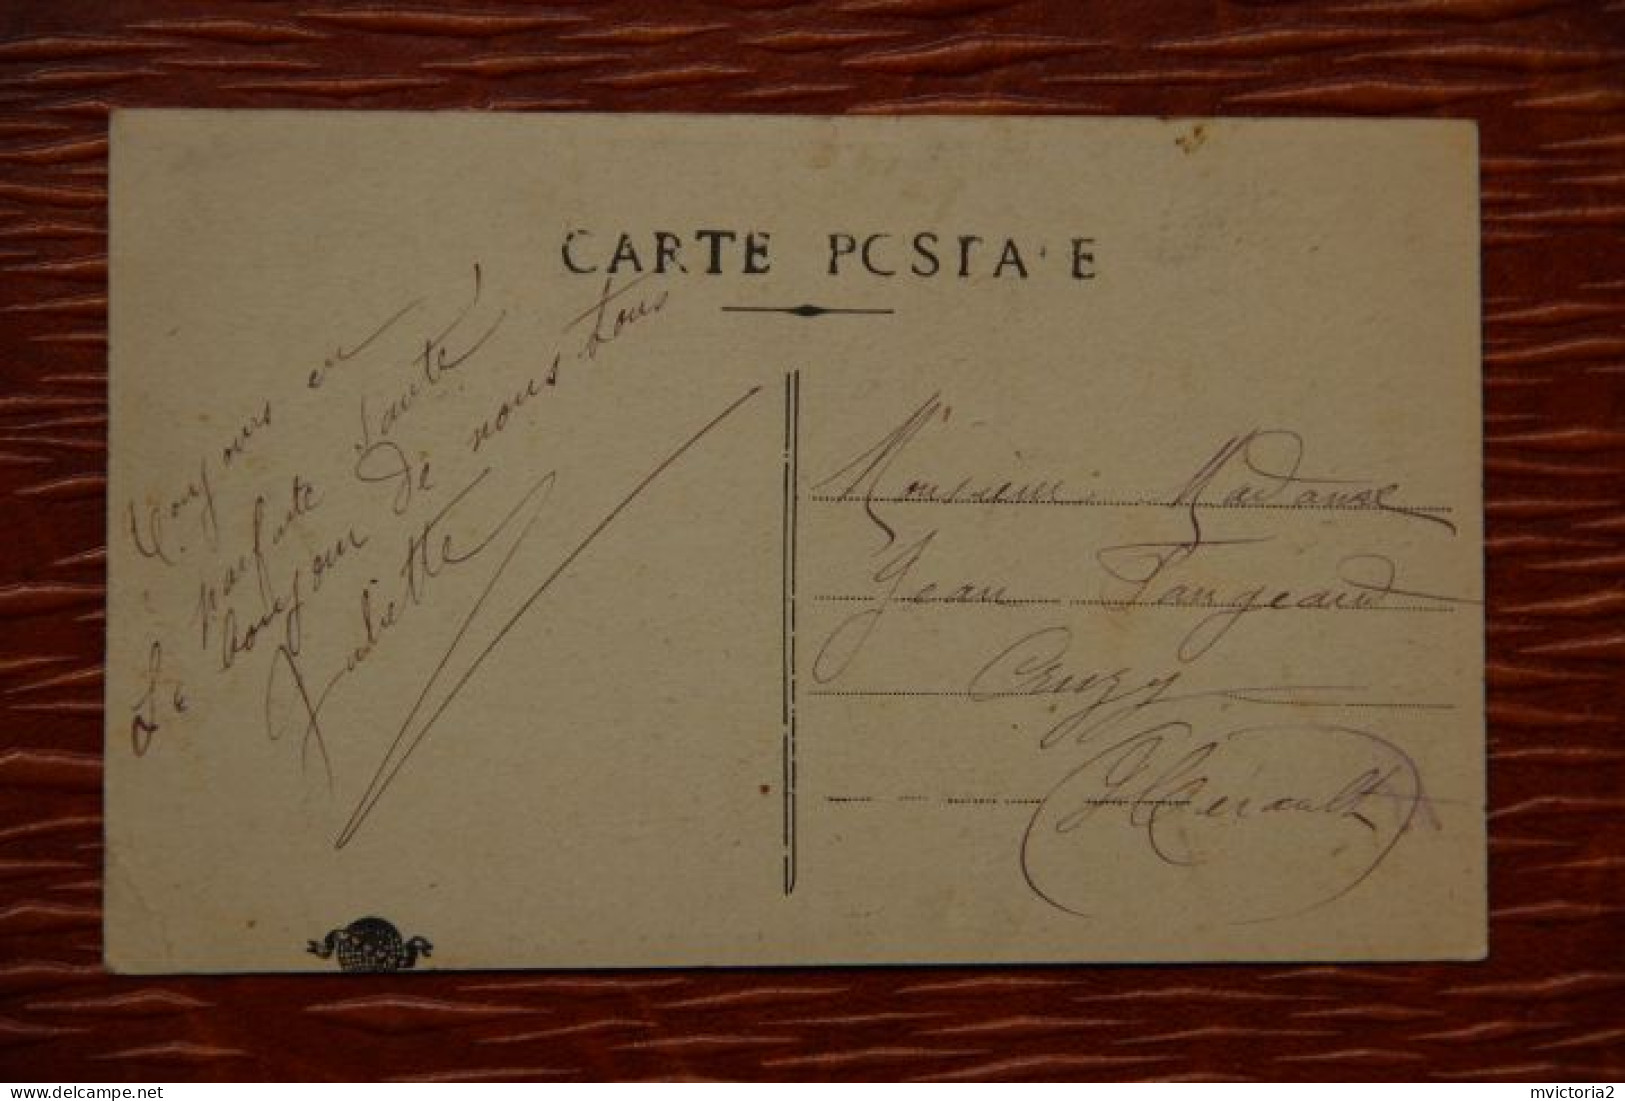 CARTE POSTALE
Toujours en
parfaite santé
Le bonjour de nous tous
Juliette
Monsieur Madame
Jean Pangeaud
Cruzy
Hérault
mvictoria2